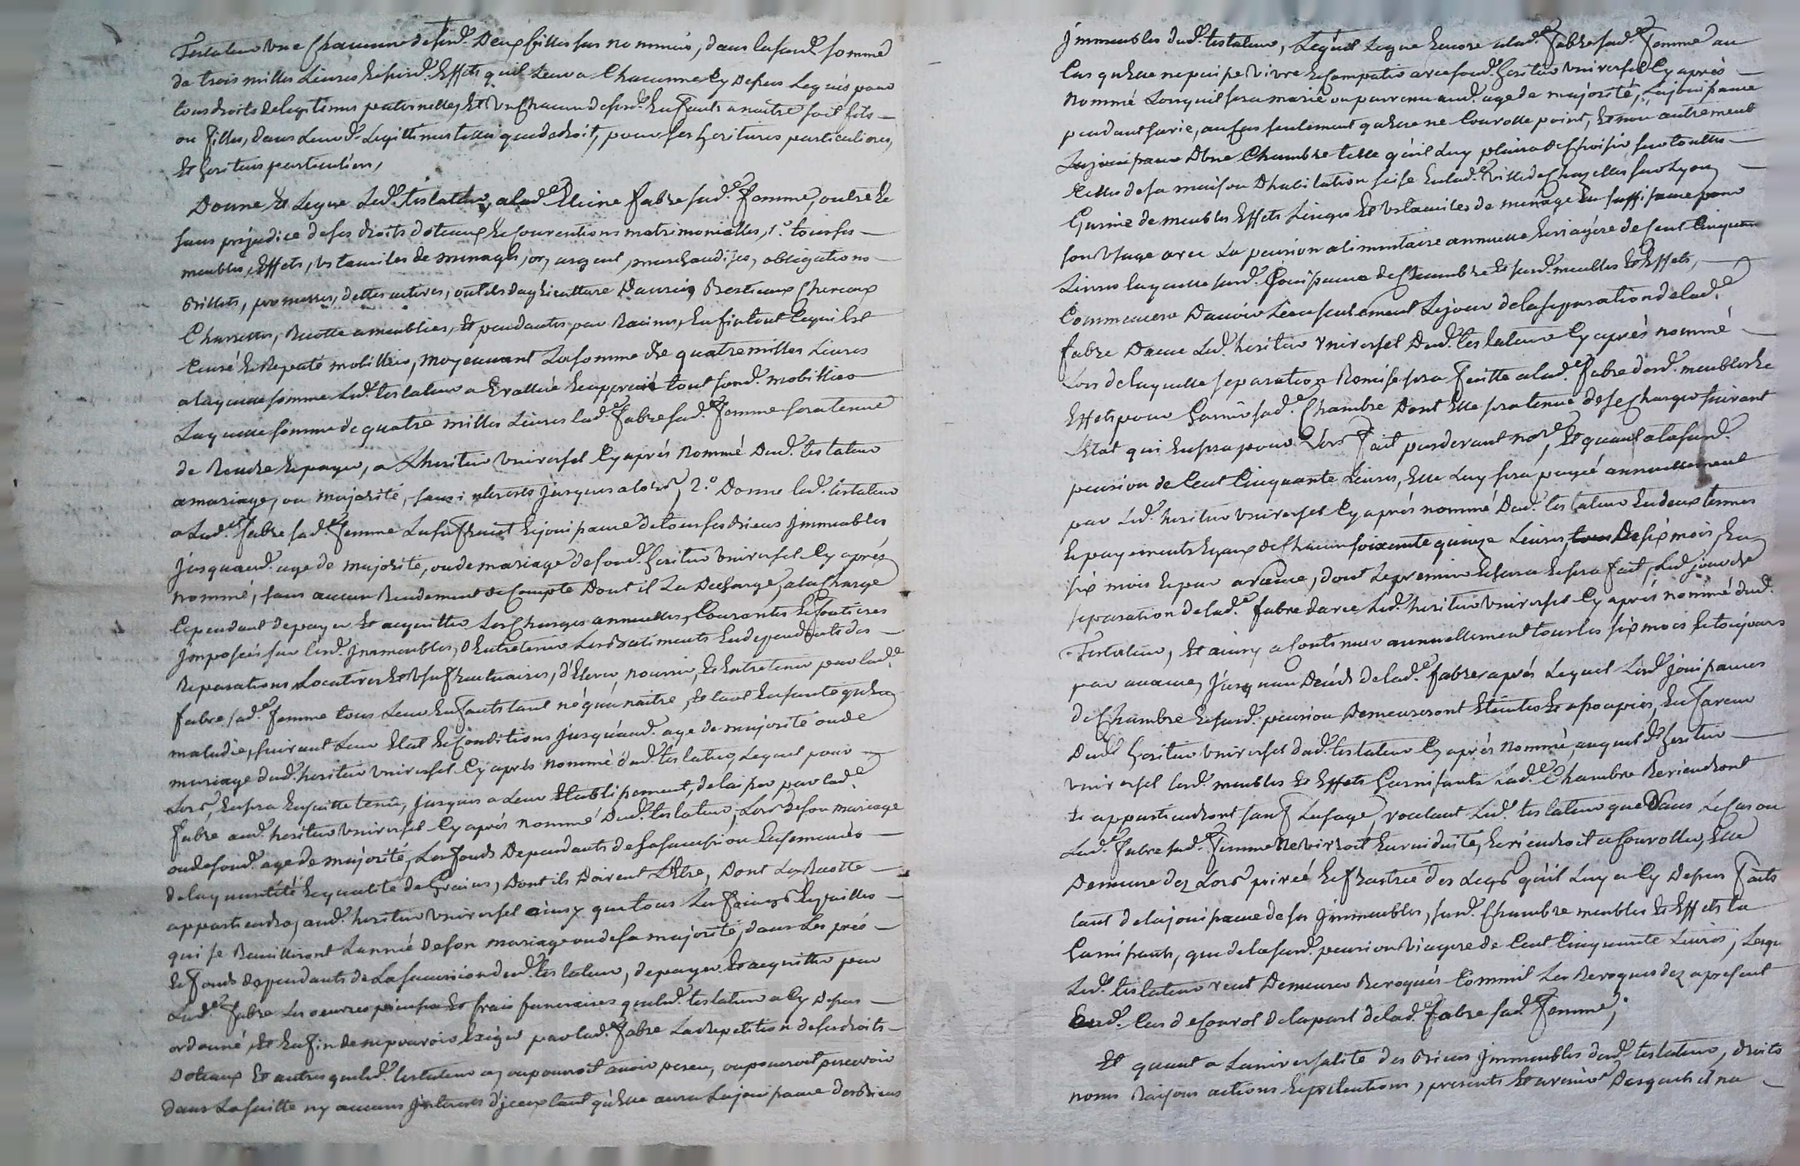 Testateur une chacunne desd. Deux filles sus nommées, dans lasusd. somme
de trois milles Livres Et susd. Effets qu'il Leur a Chacunne Cy Depuis Legués pour
tous droits de legitimes paternelles, Et Un Chacun desd. Enfants a naitre soit fils
ou filles, dans Leurd. Legittimes telles que de droit, pour ses heritieres particulieres,
Et heritiers particuliers,
Donne Et Legue Led. testateur, a lad. Fabre sad. femme, outre Et
sans prejudice de ses droits dotaux Et Conventions matrimonialles, 1.° tous ses
meubles, Effets, Ustanciles de menages, or, argent, marchandises, obligations
Billets, promesses, dettes actives, outils dagriculture Bestiaux Chevaux
Charrettes, Recolte ameublies, Et pendantes par Racines, Enfin tout Ce qui Est
Censé Et Reputé mobillier, moyennant La somme de quatre milles Livres
a laquelle somme Led. testateur a Evallué tout sond. mobillier
Laquelle somme de quatre milles Livres lad. Fabre sad. femme sera tenue
de Rendre Et payer, a L'heritier Universel Cy aprés Nommé Dud. testateur
a mariage, ou majorité, sans interests jusques alors, 2.° Donne led. testateur
a Lad. Fabre sad. femme Lusufruit Et jouissance de tous ses Biens Immeubles
Jusquaud. age de majorité, ou de mariage de sond. heritier Universel Cy aprés
nommé, sans aucun Rendement de Compte Dont il La Decharge, a la Charge
Cependant de payer Et acquitter Les Charges annuelles, Courantes Et fonsieres
Imposées sur lesd. Immeubles, D'Entretenir Lesd. Batiments Independants des
Reparations Locatives Et Usufructuaires, d'Elever, nourrir, Et Entretenir par lad.
Fabre sad. femme tous Leurs Enfants tant né qu'a naitre, Et tant En santé qu'En
maladie, suivant Leur Etat Et Conditions jusquaud. age de majorité ou de
mariage dud. heritier Universel Cy aprés nommé dud. testateur, Lequel pour
Lors, Ensera Ensuitte tenu, jusques a Leur Etablissement, delaisser par lad.
Fabre aud. heritier Universel Cy aprés nommé Dud. testateur, Lors de son mariage
ou de sond. age de majorité, Les fonds Dependants de sa succession Ensemencés
de la quantité Et qualité de Grains, Dont ils Doivent L'Etre, Dont La Recolte
appartiendra, aud. heritier Universel ainsy que tous Les foings Et pailles
qui se Recuilliront L'année de son mariage ou de sa majorité, dans Les prés
Et fonds dependants de La succession dud. testateur, de payer Et acquitter par
Lad. Fabre Les oeuvres pies Et frais funeraires que led. testateur a Cy Depus
ordonné, Et Enfin de ne pouvoir Exiger par lad. Fabre La Repetition de ses droits
Dotaux Et autres que led. testateur a, ou pouroit avoir perceu, ou pouroit percevoir
dans La suitte ny aucuns Interets d'iceux tant qu'Elle aura La jouissance des Biens
Immeubles dud. testateur, Lequel Legue Encore a lad. Fabre sad. femme au
Cas qu'Elle ne puisse Vivre Et Compatir avec sond. heritier Universel Cy aprés
Nommé Lorsqu'il sera marié ou parvenu aud. age de majorité, La jouissance
pendant sa vie, au Cas seulement qu'Elle ne Convolle point, Et non autrement
La jouissance D'Une Chambre telle qu'il Luy plaira de Choisir sur toutes
Celles de sa maison D'habitation size En lad. Ville de Chazelles sur Lyon
Garnie de meubles Effets Linges Et Ustanciles de menage En suffisance pour
son Usage avec La pension alimentaire annuelle Et viagere de Cent Cinquante
Livres laquelle susd. Jouissance de Chambre Et susd. meubles Et Effets,
Commencera D'avoir Lieu seulement Le jour de la separation de lad.
Fabre D'avec Led. heritier Universel Dud. testateur Cy aprés nommé
Lors de laquelle separation Remise sera faitte a lad. Fabre desd. meubles Et
Effets pour Garnir sad. Chambre Dont Elle sera tenue de se Charger suivant
L'Etat qui En sera pour Lors fait pardevant no.re, Et quant a la susd.
pension de Cent Cinquante Livres, Elle Luy sera payée annuellement
par Led. heritier Universel Cy aprés nommé Dud. testateur En deux termes
Et payements Egaux de Chacun soixante quinze Livres, De six mois En
six mois Et par avance, dont Le premier Echera Et sera fait, Led. jour de
separation de lad. Fabre davec Led. heritier Universel Cy aprés nommé dud.
Testateur, Et ainsy a Continuer annuellement tous les six mois Et toujours
par avance, Jusqu'au Décés de lad. Fabre, aprés Lequel Lesd. jouissances
de Chambre Et susd. pension Demeureront Eteintes Et assoupies, En faveur
Dud. heritier Universel dud. testateur Cy aprés Nommé, auquel d. heritier
Universel lesd. meubles Et Effets Garnissants Lad. Chambre Reviendront
Et appartiendront sauf Lusage, voulant Led. testateur que Dans Le Cas ou
Lad. Fabre sad. femme ne Vivroit En viduité, Et viendroit a Convoller, Elle
Demeure dez Lors privée Et frustrée des Legs qu'il Luy a Cy Depus Faits
tant de la jouissance de ses Immeubles, susd. Chambre meubles Et Effets la
Garnissants, que de la susd. pension Viagere de Cent Cinquante Livres, Lesqu
Led. testateur veut Demeurer Revoqués Comm'il Les Revoque dez apresent
Aud. Cas de Convol de la part de lad. Fabre sad. femme;
Et quant a L'universalité des Biens Immeubles dud. testateur, droits
noms Raisons actions Et pretentions, presents Et avenir Desquels il na